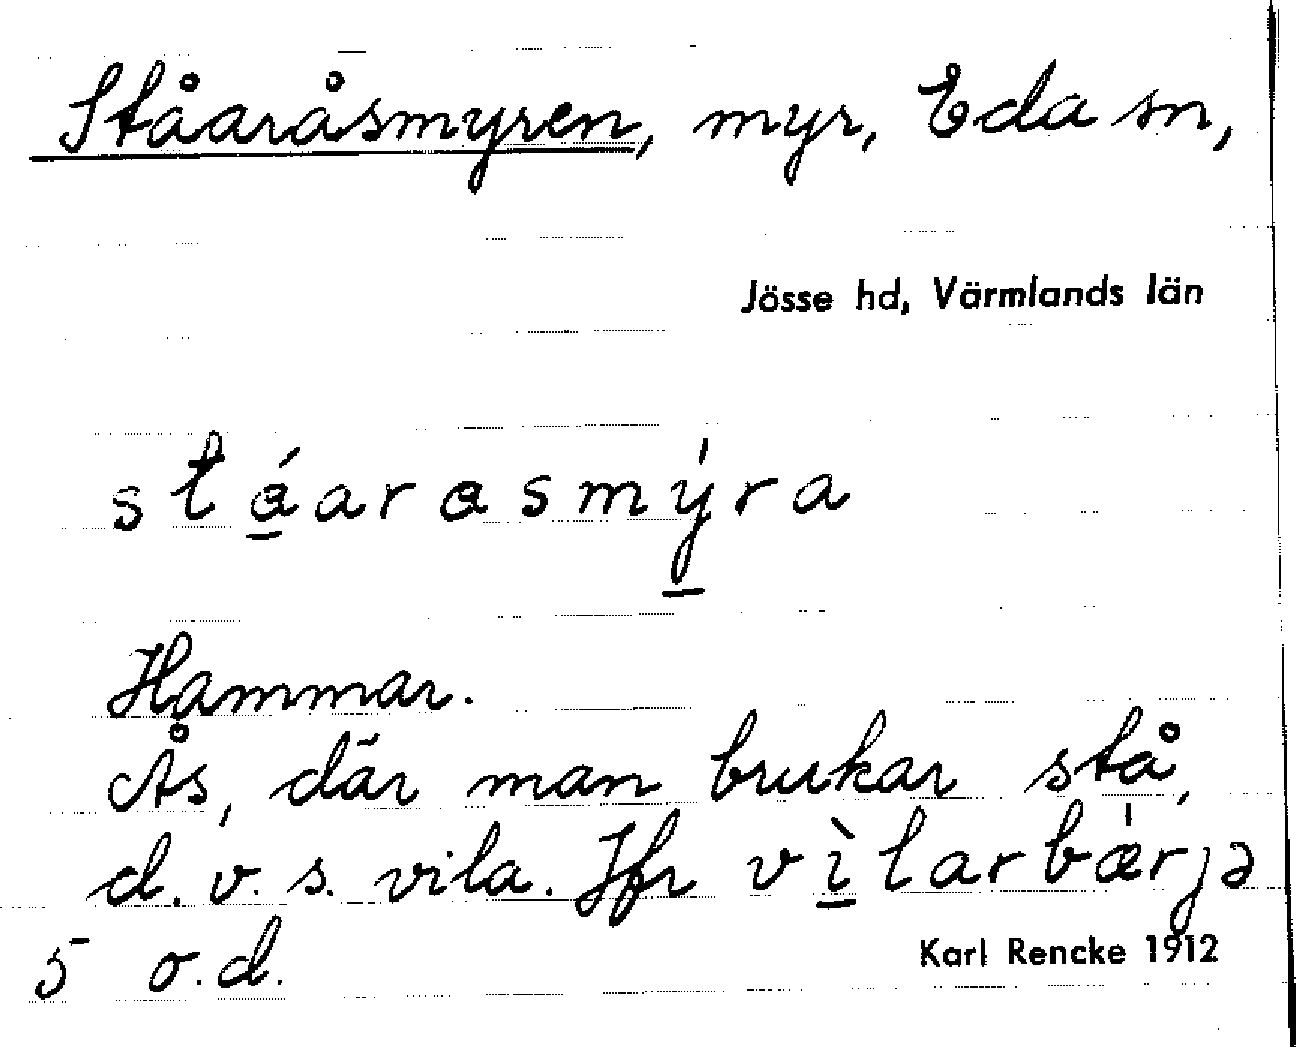 Ståaråsmyren, myr, Eda sn,
Jösse hd, Värmlands län
Hammar.
Ås, där man brukar stå,
d. v. s. vila. Jfr vìlarbǽrjə
5 o.d.
Karl Rencke 1912